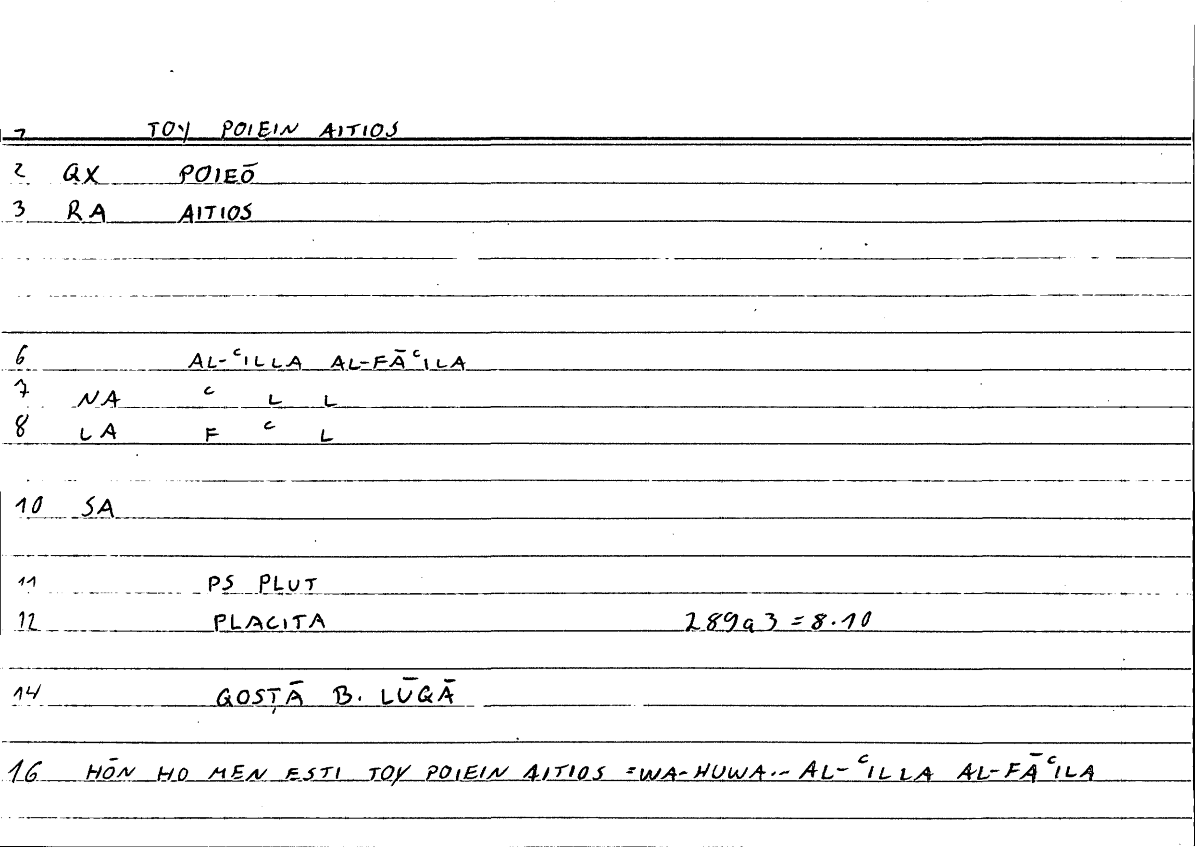 1 TOY POIEIN AITIOS
2 QX POIEŌ
3 RA AITIOS
6 AL-ᶜILLA AL-FĀᶜILA
7 NA ᶜ L L
8 LA F ᶜ L
10 SA
11 PS PLUT
12 PLACITA 289a3 = 8.10
14 QOSṬĀ B. LŪQĀ
16 HŌN HO MEN ESTI TOY POIEIN AITIOS = WA-HUWA.- AL-ᶜILLA AL-FĀᶜILA